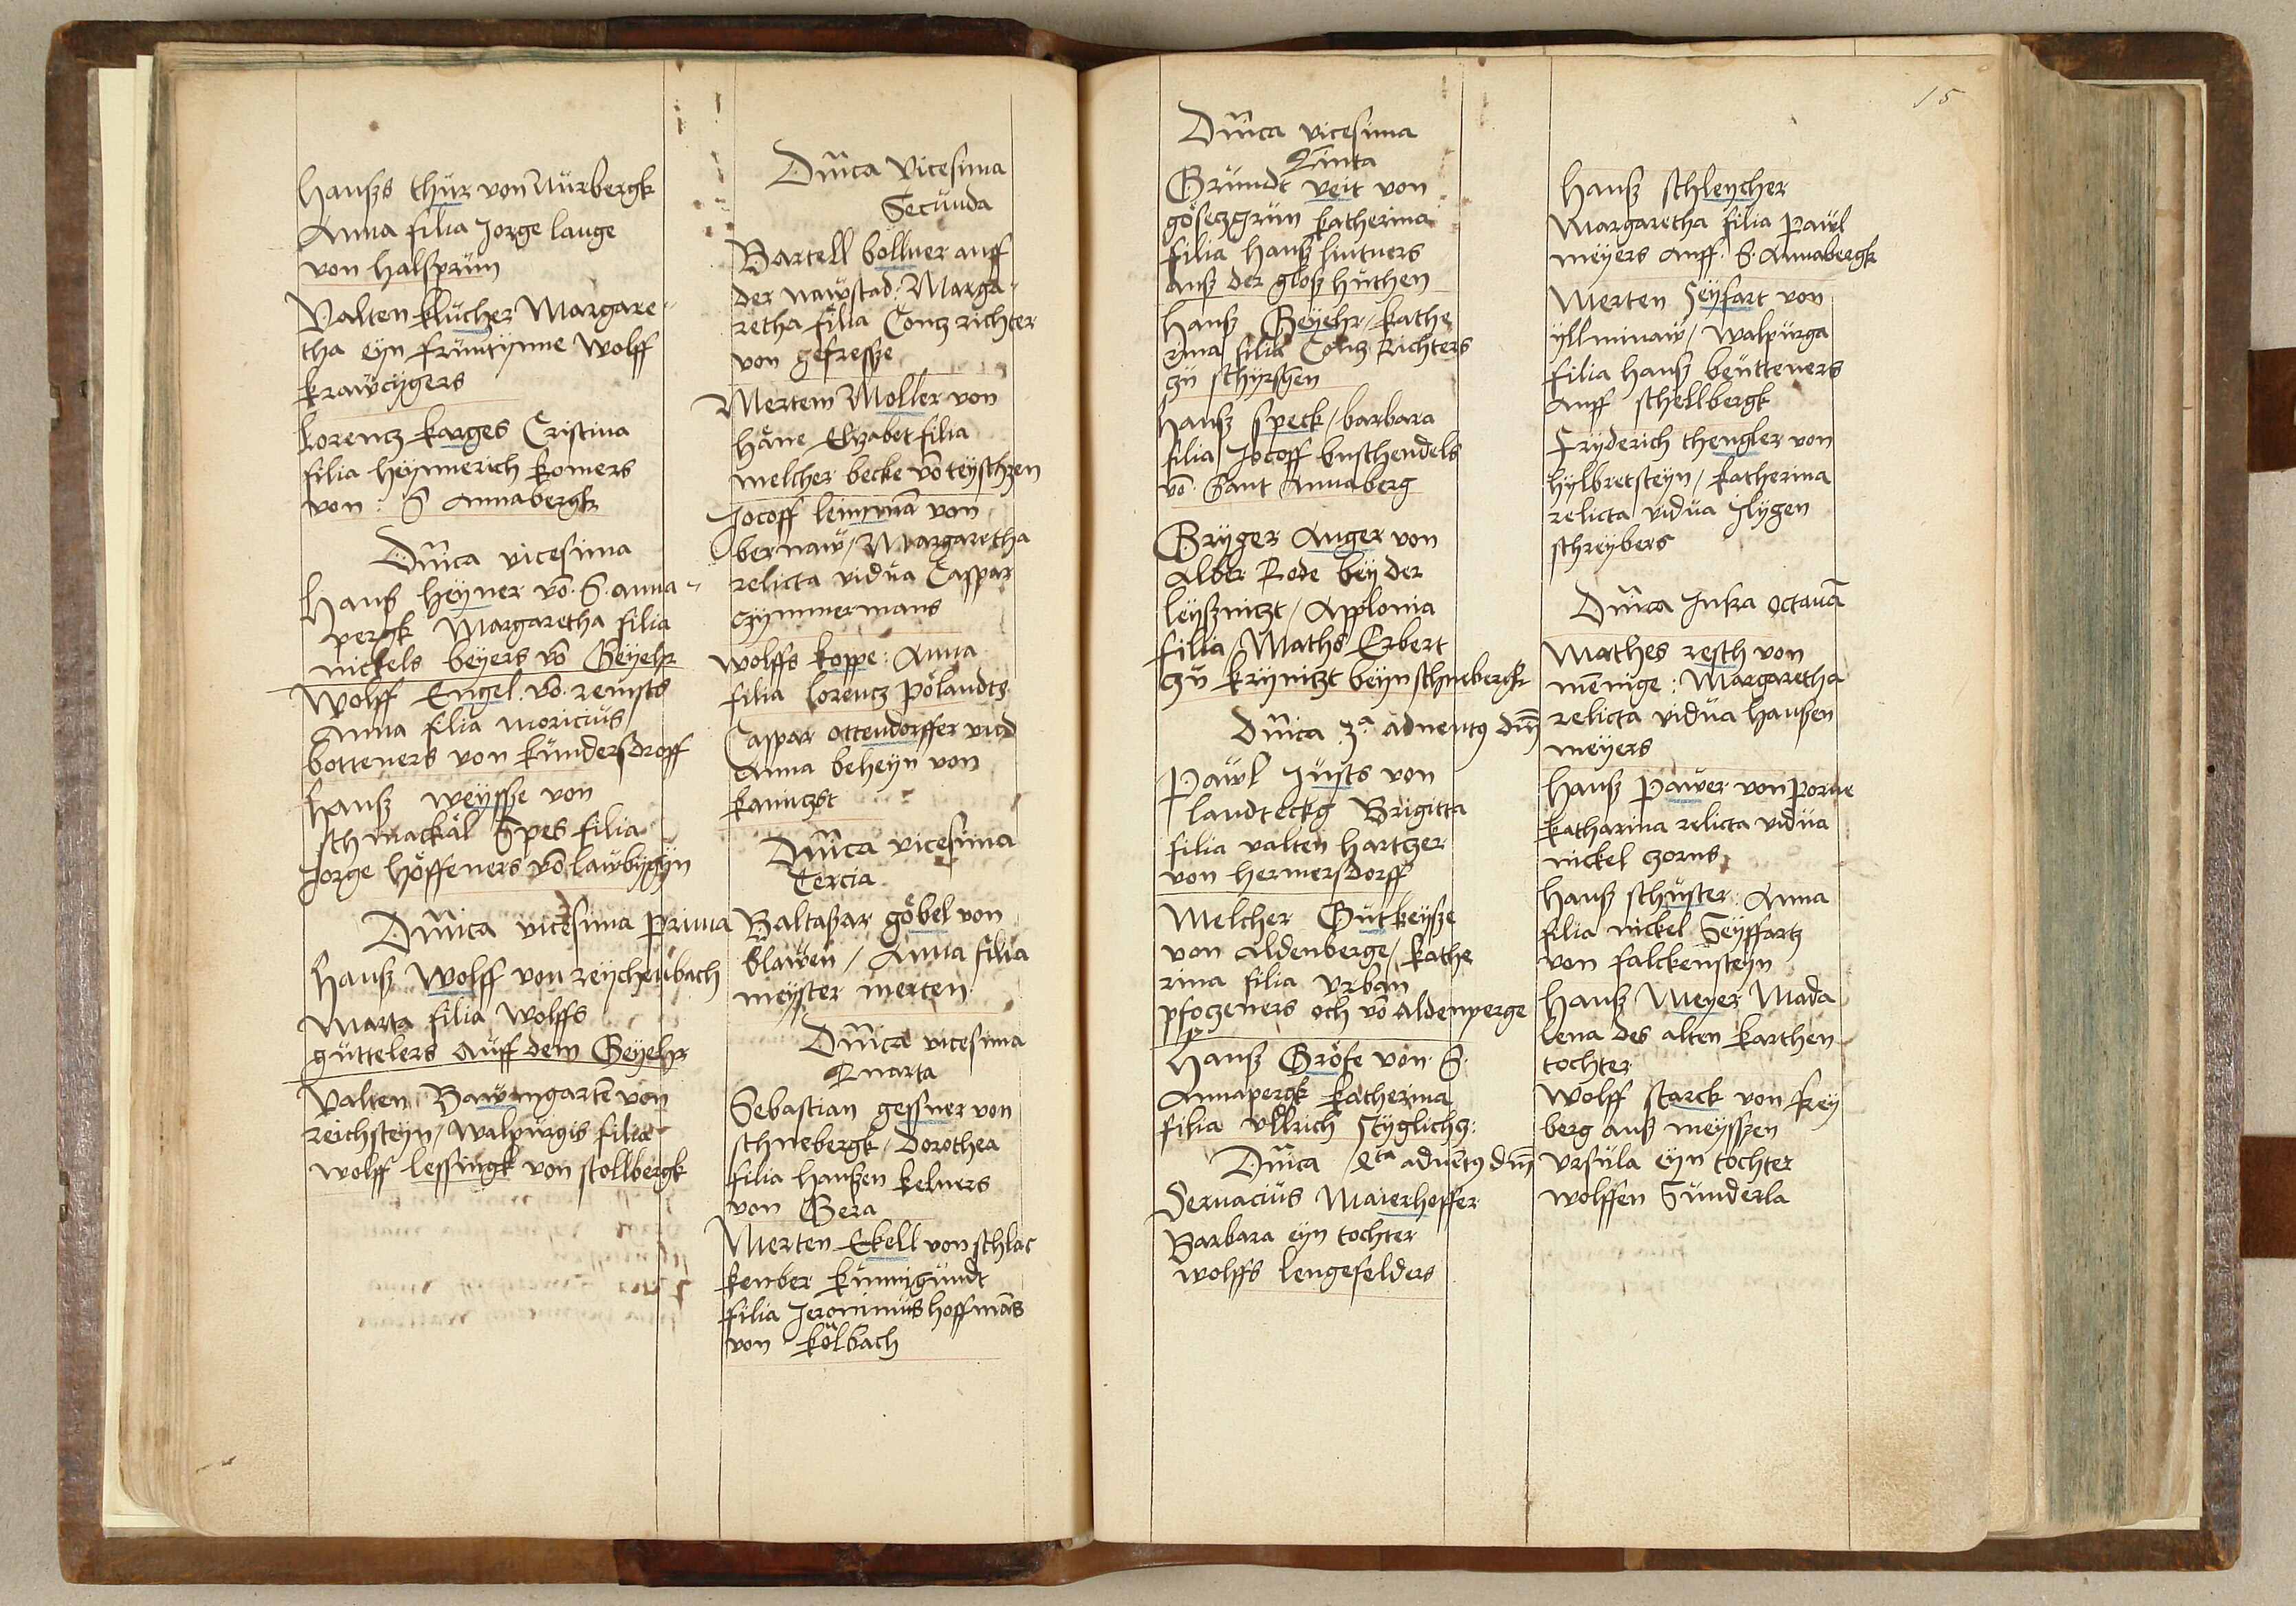 Hanßs thür von Nürbergk
Anna filia Jorge lange
von halßprün
Valten klücher Margare-
tha eyn früntynne Wolff
krawczygers
Lorencz karges Cristina
filia heynnerich komers
von: S Annabergk
Dn̄ica vicesima
Hanß heyner vō. S. anna-
pergk Margaretha filia
nickels beyers vō Geyehr
Wolff Engel vō. remsts
Anna filia moricius
botteners von kündersdroff
Hanß weyssze von
schmackäl Spes filia
Jorge höffeners vō lawbygyn
Dn̄ica vicesima prima
Hanß Wolff von reychenbach
Marta filia Wolffs
güttelers auff dem Geyehr
Valten Bawmgartē von
reichsteyn / Walpurgis filia
Wolff lessingk von stollbergk
Dn̄ica Vicesima
Secunda
Bartell bollner auff
der nawstad: Marga-
retha filia Concz richter
von gefressze
Mertem Moller von
häne Elyzabet filia
melcher becke vō teyschzen
Jocoff leinmā von
bernaw / Margaretha
relicta vidua Caspar
czymmermans
Wolffs koppe: Anna
filia lorencz pölandts
Caspar ottendorffer vnd
Anna beheyn von
kaniczst
Dn̄ica vicesima
Tercia
Baltaßar göbel von
blawen / Anna filia
meyster merten
Dn̄ica vicesima
Quarta
Sebastian gessner von
schnebergk / Dorothea
filia hanßen kelners
von Gera
Merten Ekell von schlac
kenber künnigundt
filia Jeronimus hoffmās
von kölbach
15
Dn̄ica vicesima
Qinta
Gründt veit von
gösczgrün katherina
filia hanß lintners
auß der gloß hüthen
Hanß Geyehr / kathe
rina filia Concz Richters
zü schyrschen
Hanß speck / barbara
filia Jocoff buschendels
vō. Sant Annaberg
Gryger Anger von
Alber Rode bey der
leyßniczt / Applonia
filia Maths Erbert
zü kryniczt beyn schnebergk
Dn̄ica 3ª aduentus dn̄i
Pawl Justs von
landteckg Brigitta
filia valten hartzer
von hermersdorff
Melcher Gutkeysze
von Aldenberge / kathe
rina filia vrban
pfoczeners och vō Aldenperge
Hanß Gröfe von. S.
Annapergk katherina
filia vllrich Styglichz:
Dn̄ica 4ta aduētus dn̄i
Seruacius Maierheffer
Barbara eyn tochter
wolffs lengefelders
Hanß schleycher
Margaretha filia Pawl
meyers auff. S. Annabergk
Merten Seyfart von
yllminaw / walpurga
filia hanß beutteners
auff schellbergk
Fryderich thengler von
hylbretsteyn / katherina
relicta vidua Ilygen
schreybers
Dn̄ica Infra octauā
Mathes resch von
mēnige: Margaretha
relicta vidua hanßen
meyers
Hanß Pawer von Porne
katharina relicta vidua
nickel zorns
Hanß schuster: Anna
filia nickel Seyffartz
von falckensteyn
Hanß Meyer Mada
lena des alten karthen
tochter
Wolff starck von frey
berg auß meysszen
vrsula eyn tochter
wolffen Sünderla